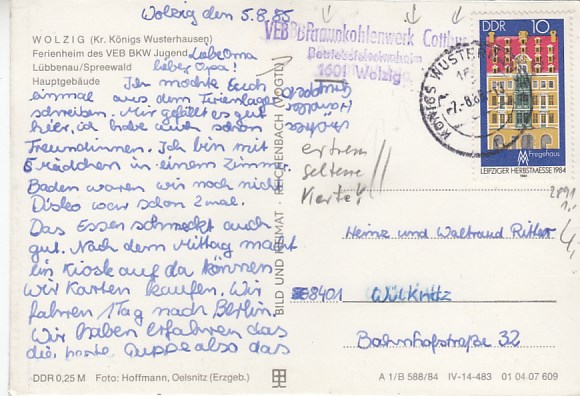 Wolzig den 5.8.85
WOLZIG (Kr. Königs Wusterhausen)
Ferienheim des VEB BKW Jugend
Lübbenau/Spreewald
Hauptgebäude
Liebe Oma
lieber Opa!
Ich möchte Euch
einmal aus dem Ferienlager
schreiben. Mir gefällt es gut
hier, ich habe auch schon
Freundinnen. Ich bin mit
5 Mädchen in einem Zimmer.
Baden waren wir noch nicht
Disko war schon 2mal.
Das Essen schmeckt auch
gut. Nach dem Mittag macht
ein Kiosk auf da können
wir Karten kaufen. Wir
fahren 1 Tag nach Berlin.
Wir haben erfahren das
die, erste Gruppe also das
DDR 0,25 M Foto: Hoffmann, Oelsnitz (Erzgeb.)
BILD UND HEIMAT REICHENBACH (VOGTL)
VEB Braunkohlenwerk Cottbus
Betriebsferienheim
1601 Wolzig
KÖNIGS WUSTERHAUSEN
-7.-8.85
DDR 10
Fregehaus
LEIPZIGER HERBSTMESSE 1984
extrem
seltene
Karte!
Heinz und Waltraud Ritter
8401 Wülknitz
Bahnhofstraße 32
A 1/B 588/84 IV-14-483 01 04 07 609